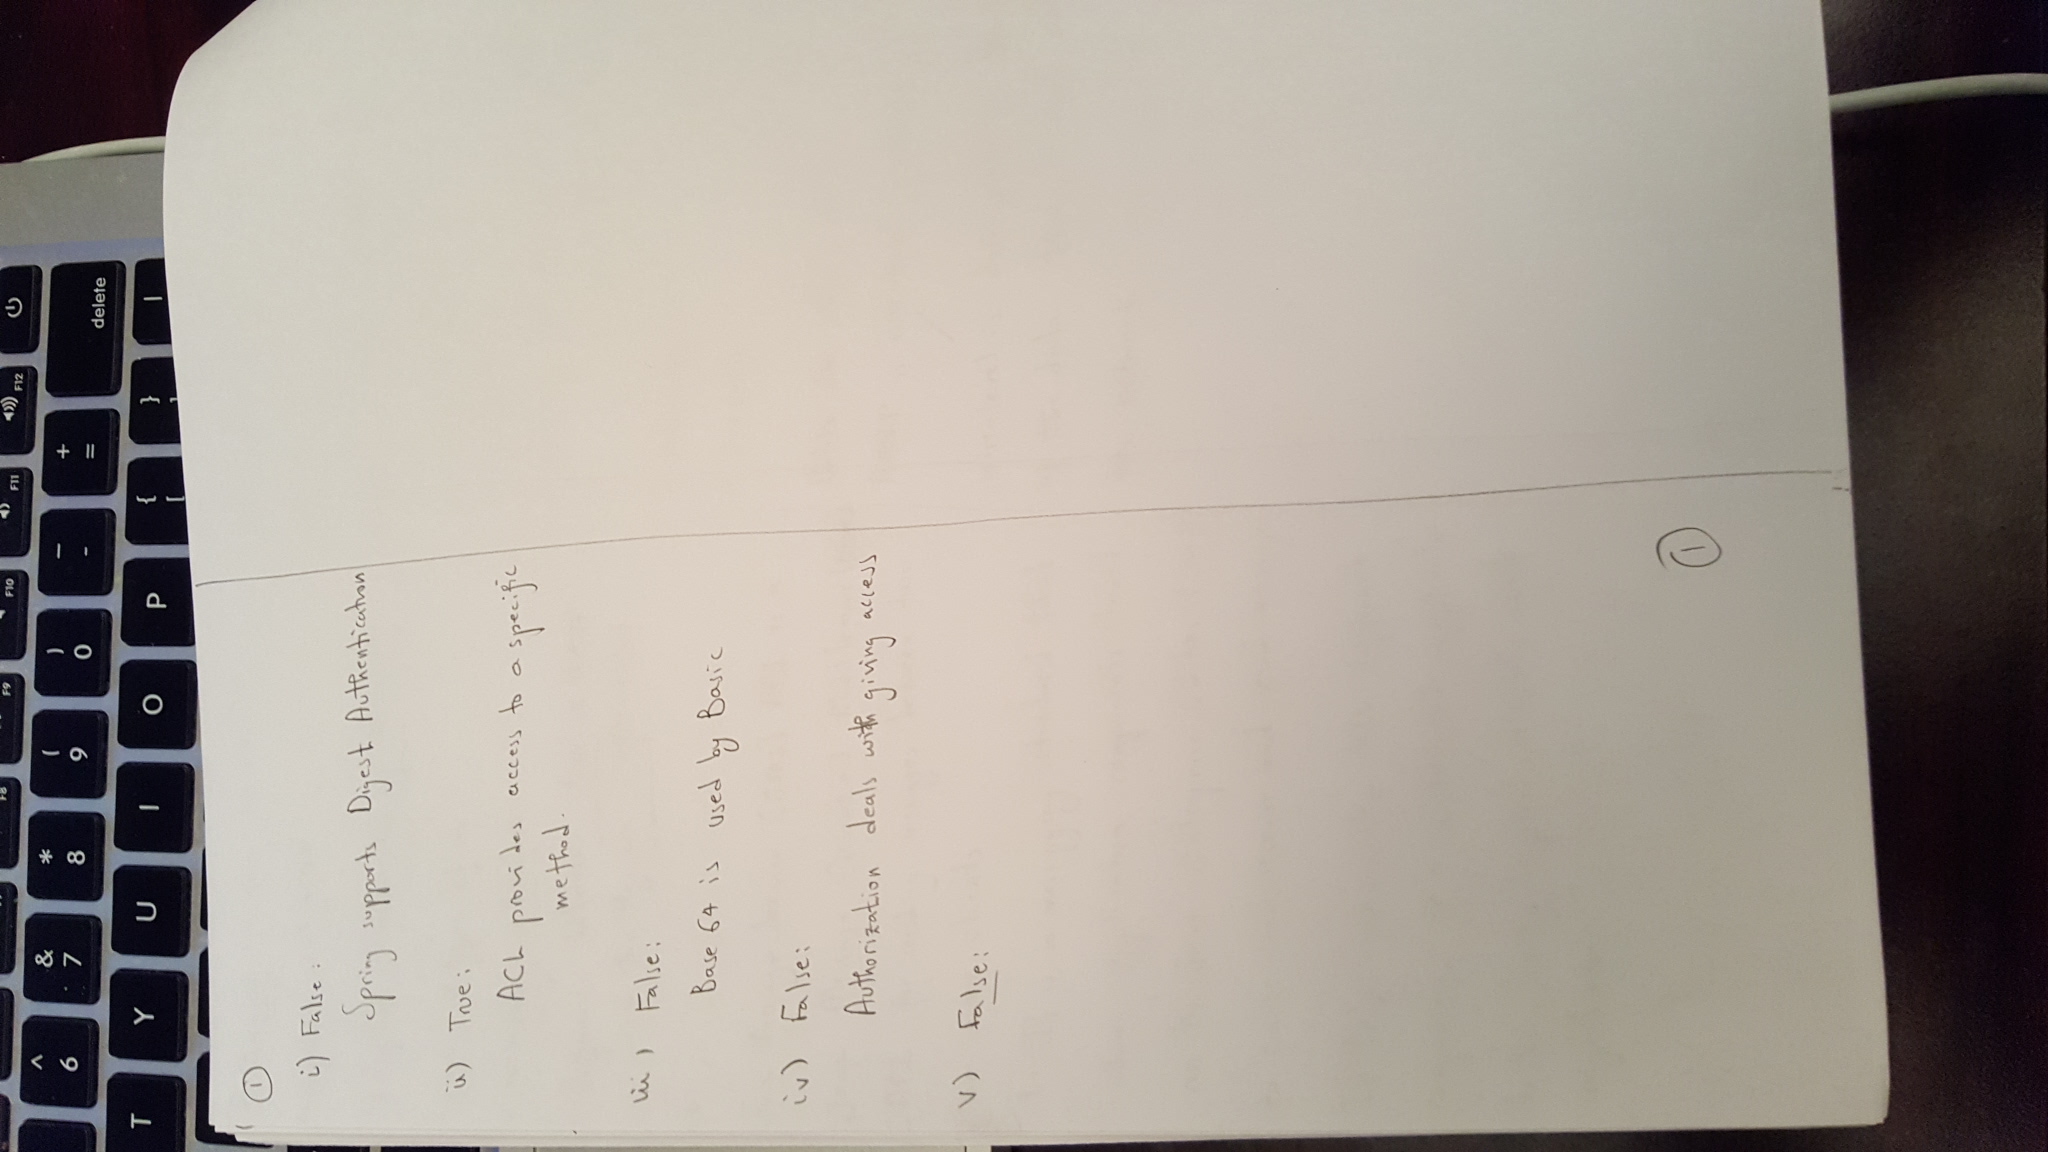 F8 F9 F10 F11 F12
^ & * ( ) — +
6 7 8 9 0 - = delete
T Y U I O P { } |
[ ]
1
i) False:
Spring supports Digest Authentication
ii) True:
ACL provides access to a specific
method.
iii) False:
Base 64 is used by Basic
iv) False:
Authorization deals with giving access
v) False:
1